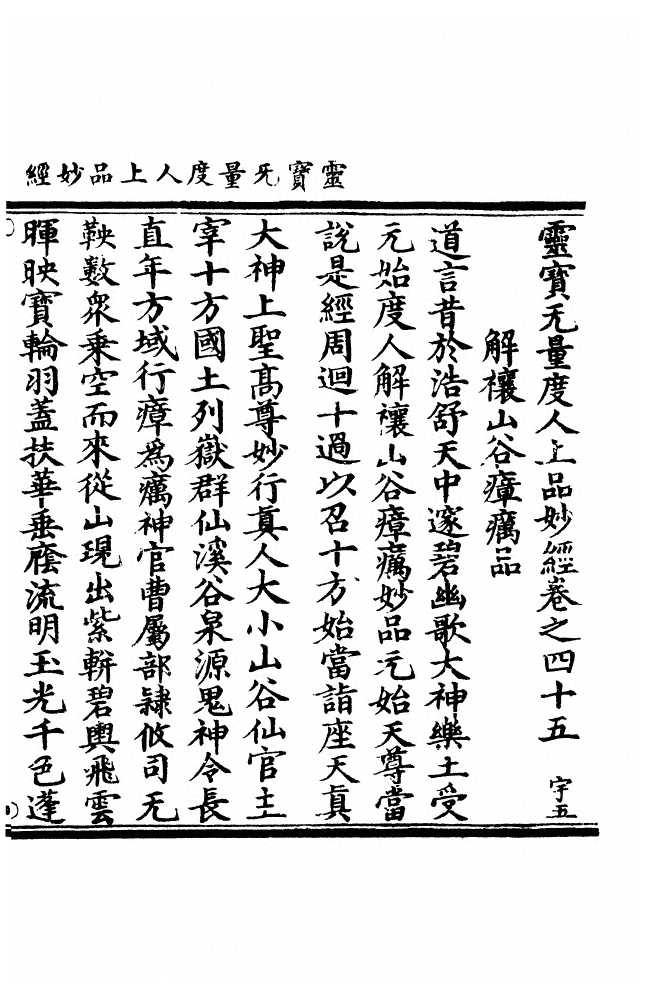 靈寶旡量度人上品妙經
靈寶无量度人上品妙經卷之四十五 宇五
解禳山谷瘴癘品
道言昔於浩舒天中邃碧幽歌大神樂土受
元始度人解禳山谷瘴癘妙品元始天尊當
說是經周迴十過以召十方始當詣座天真
大神上聖高尊妙行真人大小山谷仙官主
宰十方國土列嶽群仙溪谷泉源鬼神令長
直年方域行瘴為癘神官曹屬部隸攸司无
鞅數衆乗空而來從山現出紫軿碧輿飛雲
暉映寶輪羽蓋扶華垂廕流明玉光千色蓬